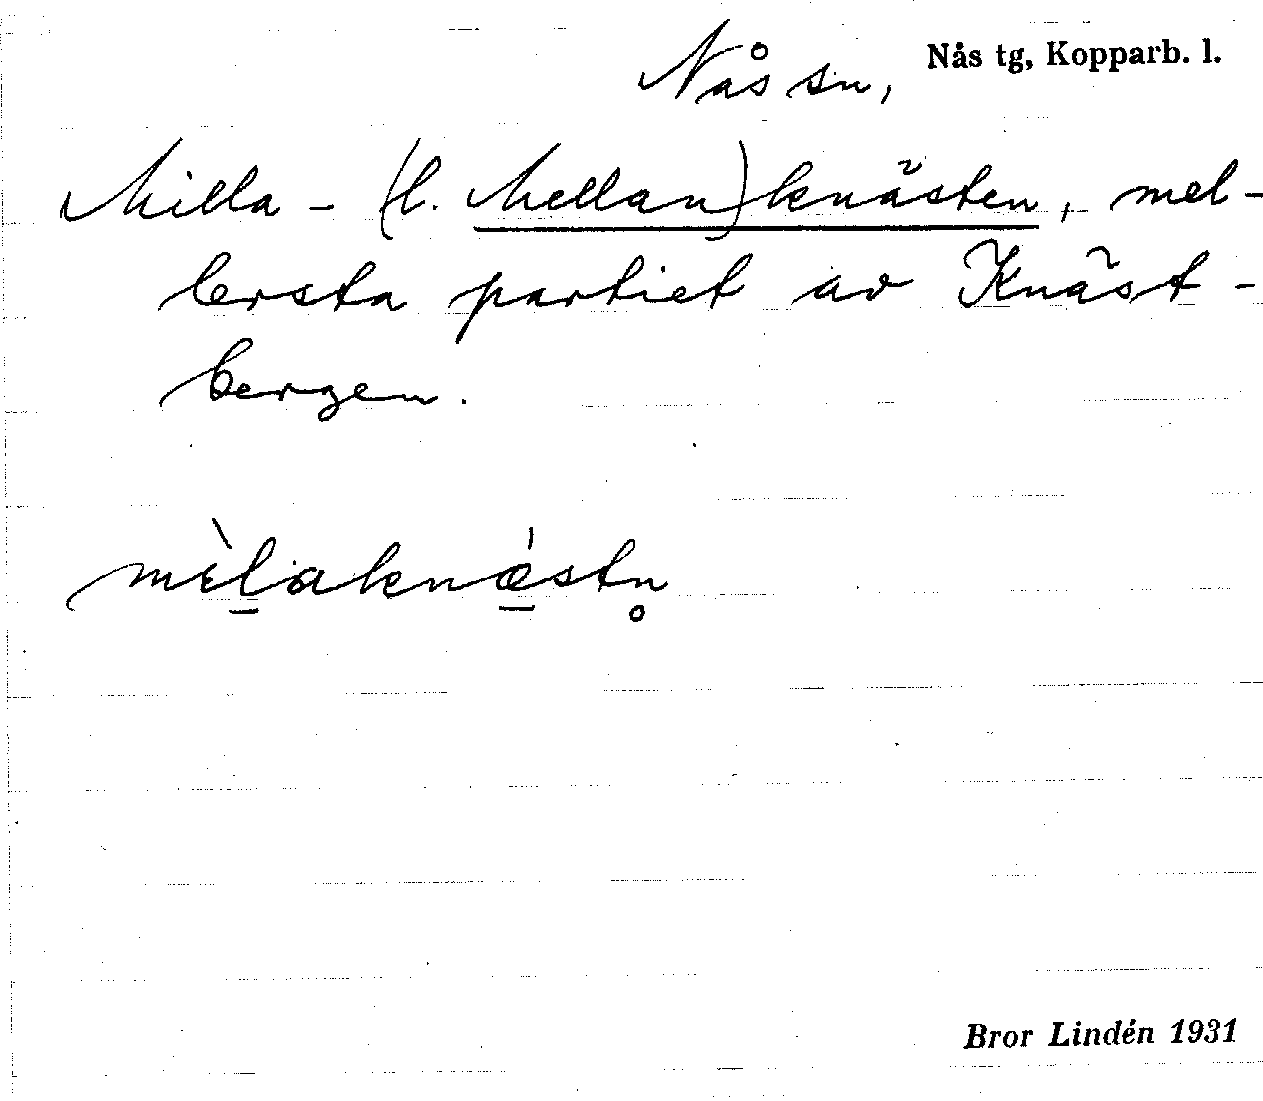 Nås sn, Nås tg, Kopparb. l.
Milla- (l. Mellan)knästen, mel-
lersta partiet av Knäst-
bergen.
mìl̲aknǽ̲stn̥
Bror Lindén 1931